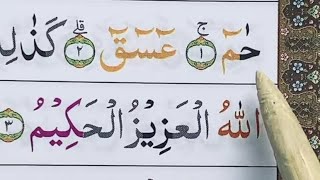 حٰمٓ ۚ ١ عٓسٓقٓ ۗ ٢ كَذٰلِ
اللّٰهُ الْعَزِيْزُ الْحَكِيْمُ ٣